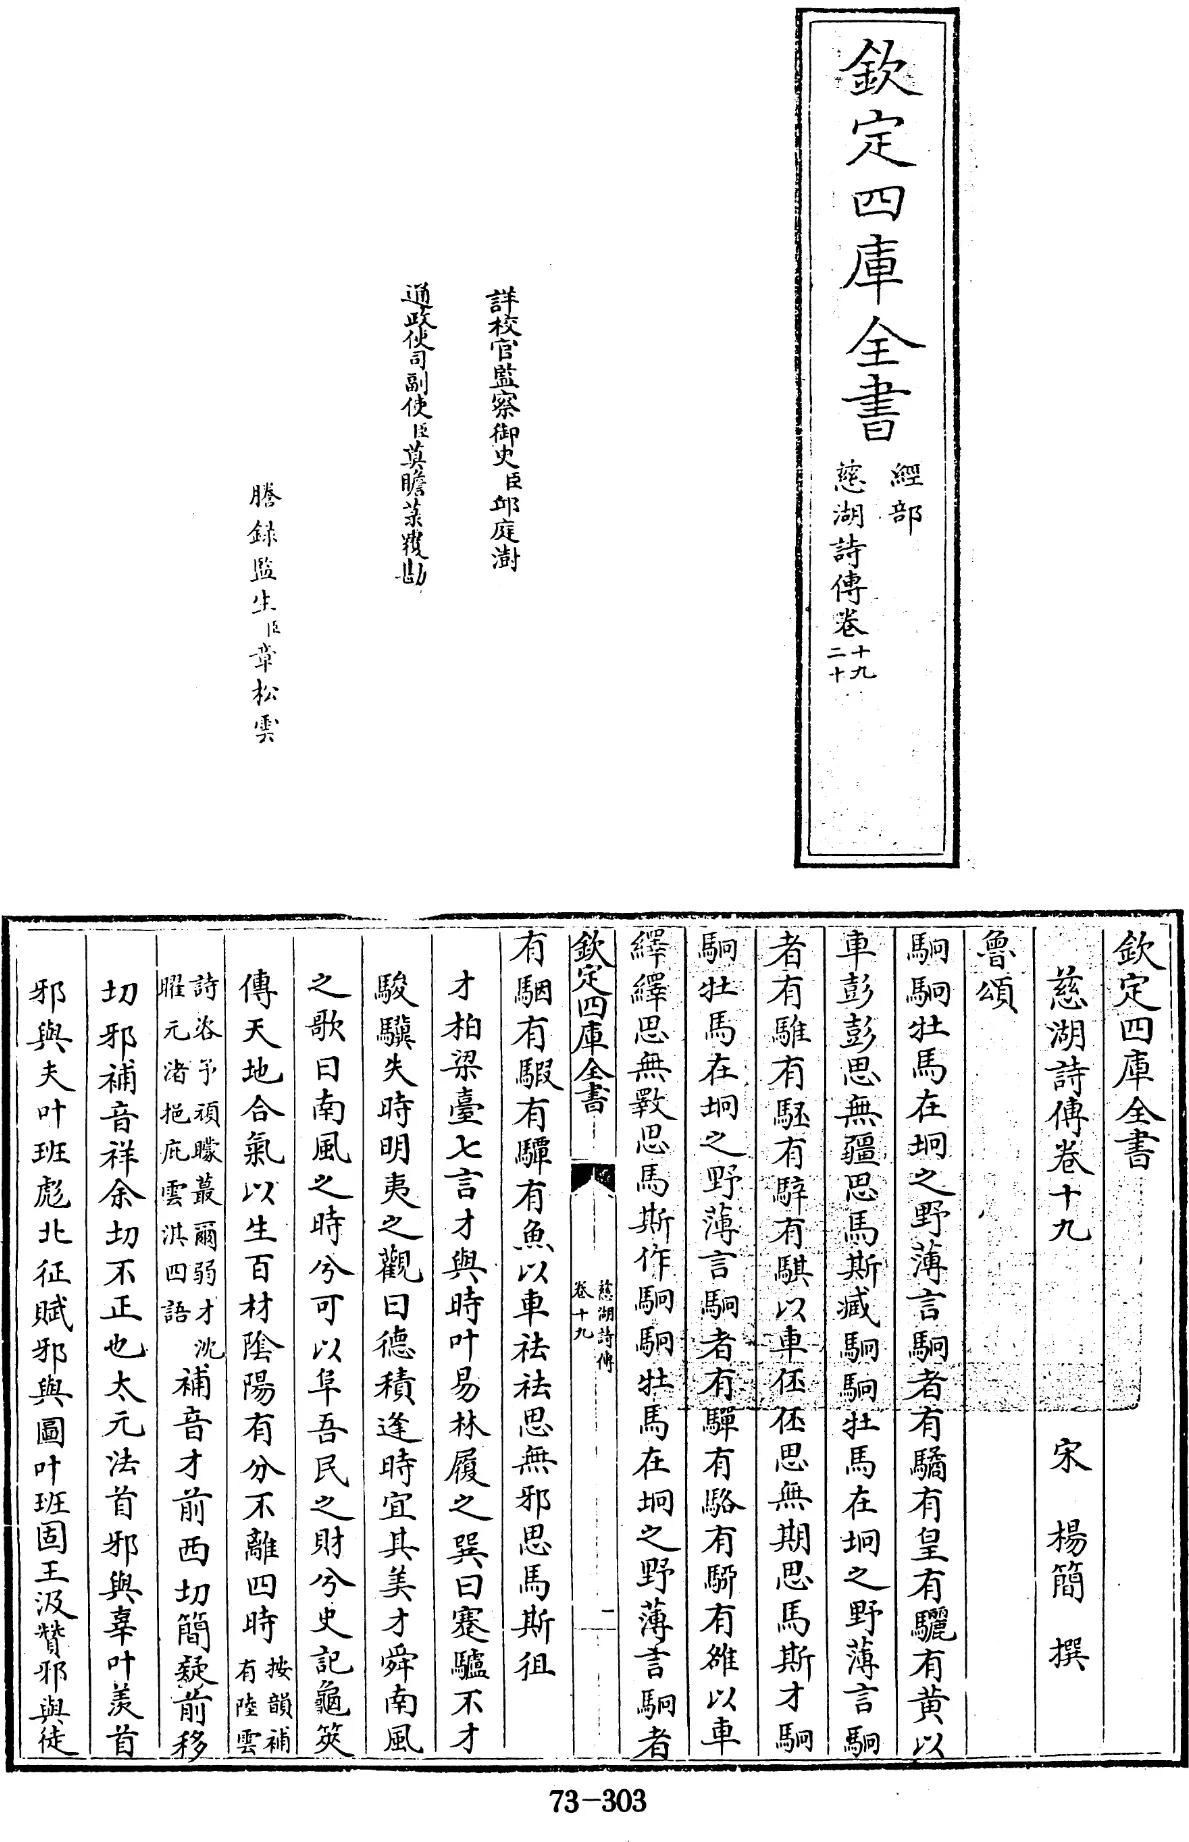 欽定四庫全書
經部
慈湖詩傳卷十九
二十
詳校官監察御史臣邱庭澍
通政使司副使臣莫瞻菉覆勘
謄録監生臣章松雲
欽定四庫全書
慈湖詩傳卷十九
宋 楊簡 撰
魯頌
駉駉牡馬在坰之野薄言駉者有驈有皇有驪有黄以
車彭彭思無疆思馬斯臧駉駉牡馬在坰之野薄言駉
者有騅有駓有騂有騏以車伾伾思無期思馬斯才駉
駉牡馬在坰之野薄言駉者有驒有駱有駵有雒以車
繹繹思無斁思馬斯作駉駉牡馬在坰之野薄言駉者
欽定四庫全書
慈湖詩傳
卷十九
一
有駰有騢有驔有魚以車祛祛思無邪思馬斯徂
才柏梁臺七言才與時叶易林履之巽曰蹇驢不才
駿驥失時明夷之觀曰德積逢時宜其美才舜南風
之歌曰南風之時兮可以阜吾民之財兮史記龜筴
傳天地合氣以生百材陰陽有分不離四時按韻補
有陸雲
詩洛予頑矇蕞爾弱才沈
曜元渚挹庇雲淇四語補音才前西切簡疑前移
切邪補音祥余切不正也太元法首邪與辜叶羨首
邪與夫叶班彪北征賦邪與圖叶班固王汲贊邪與徒
73-303